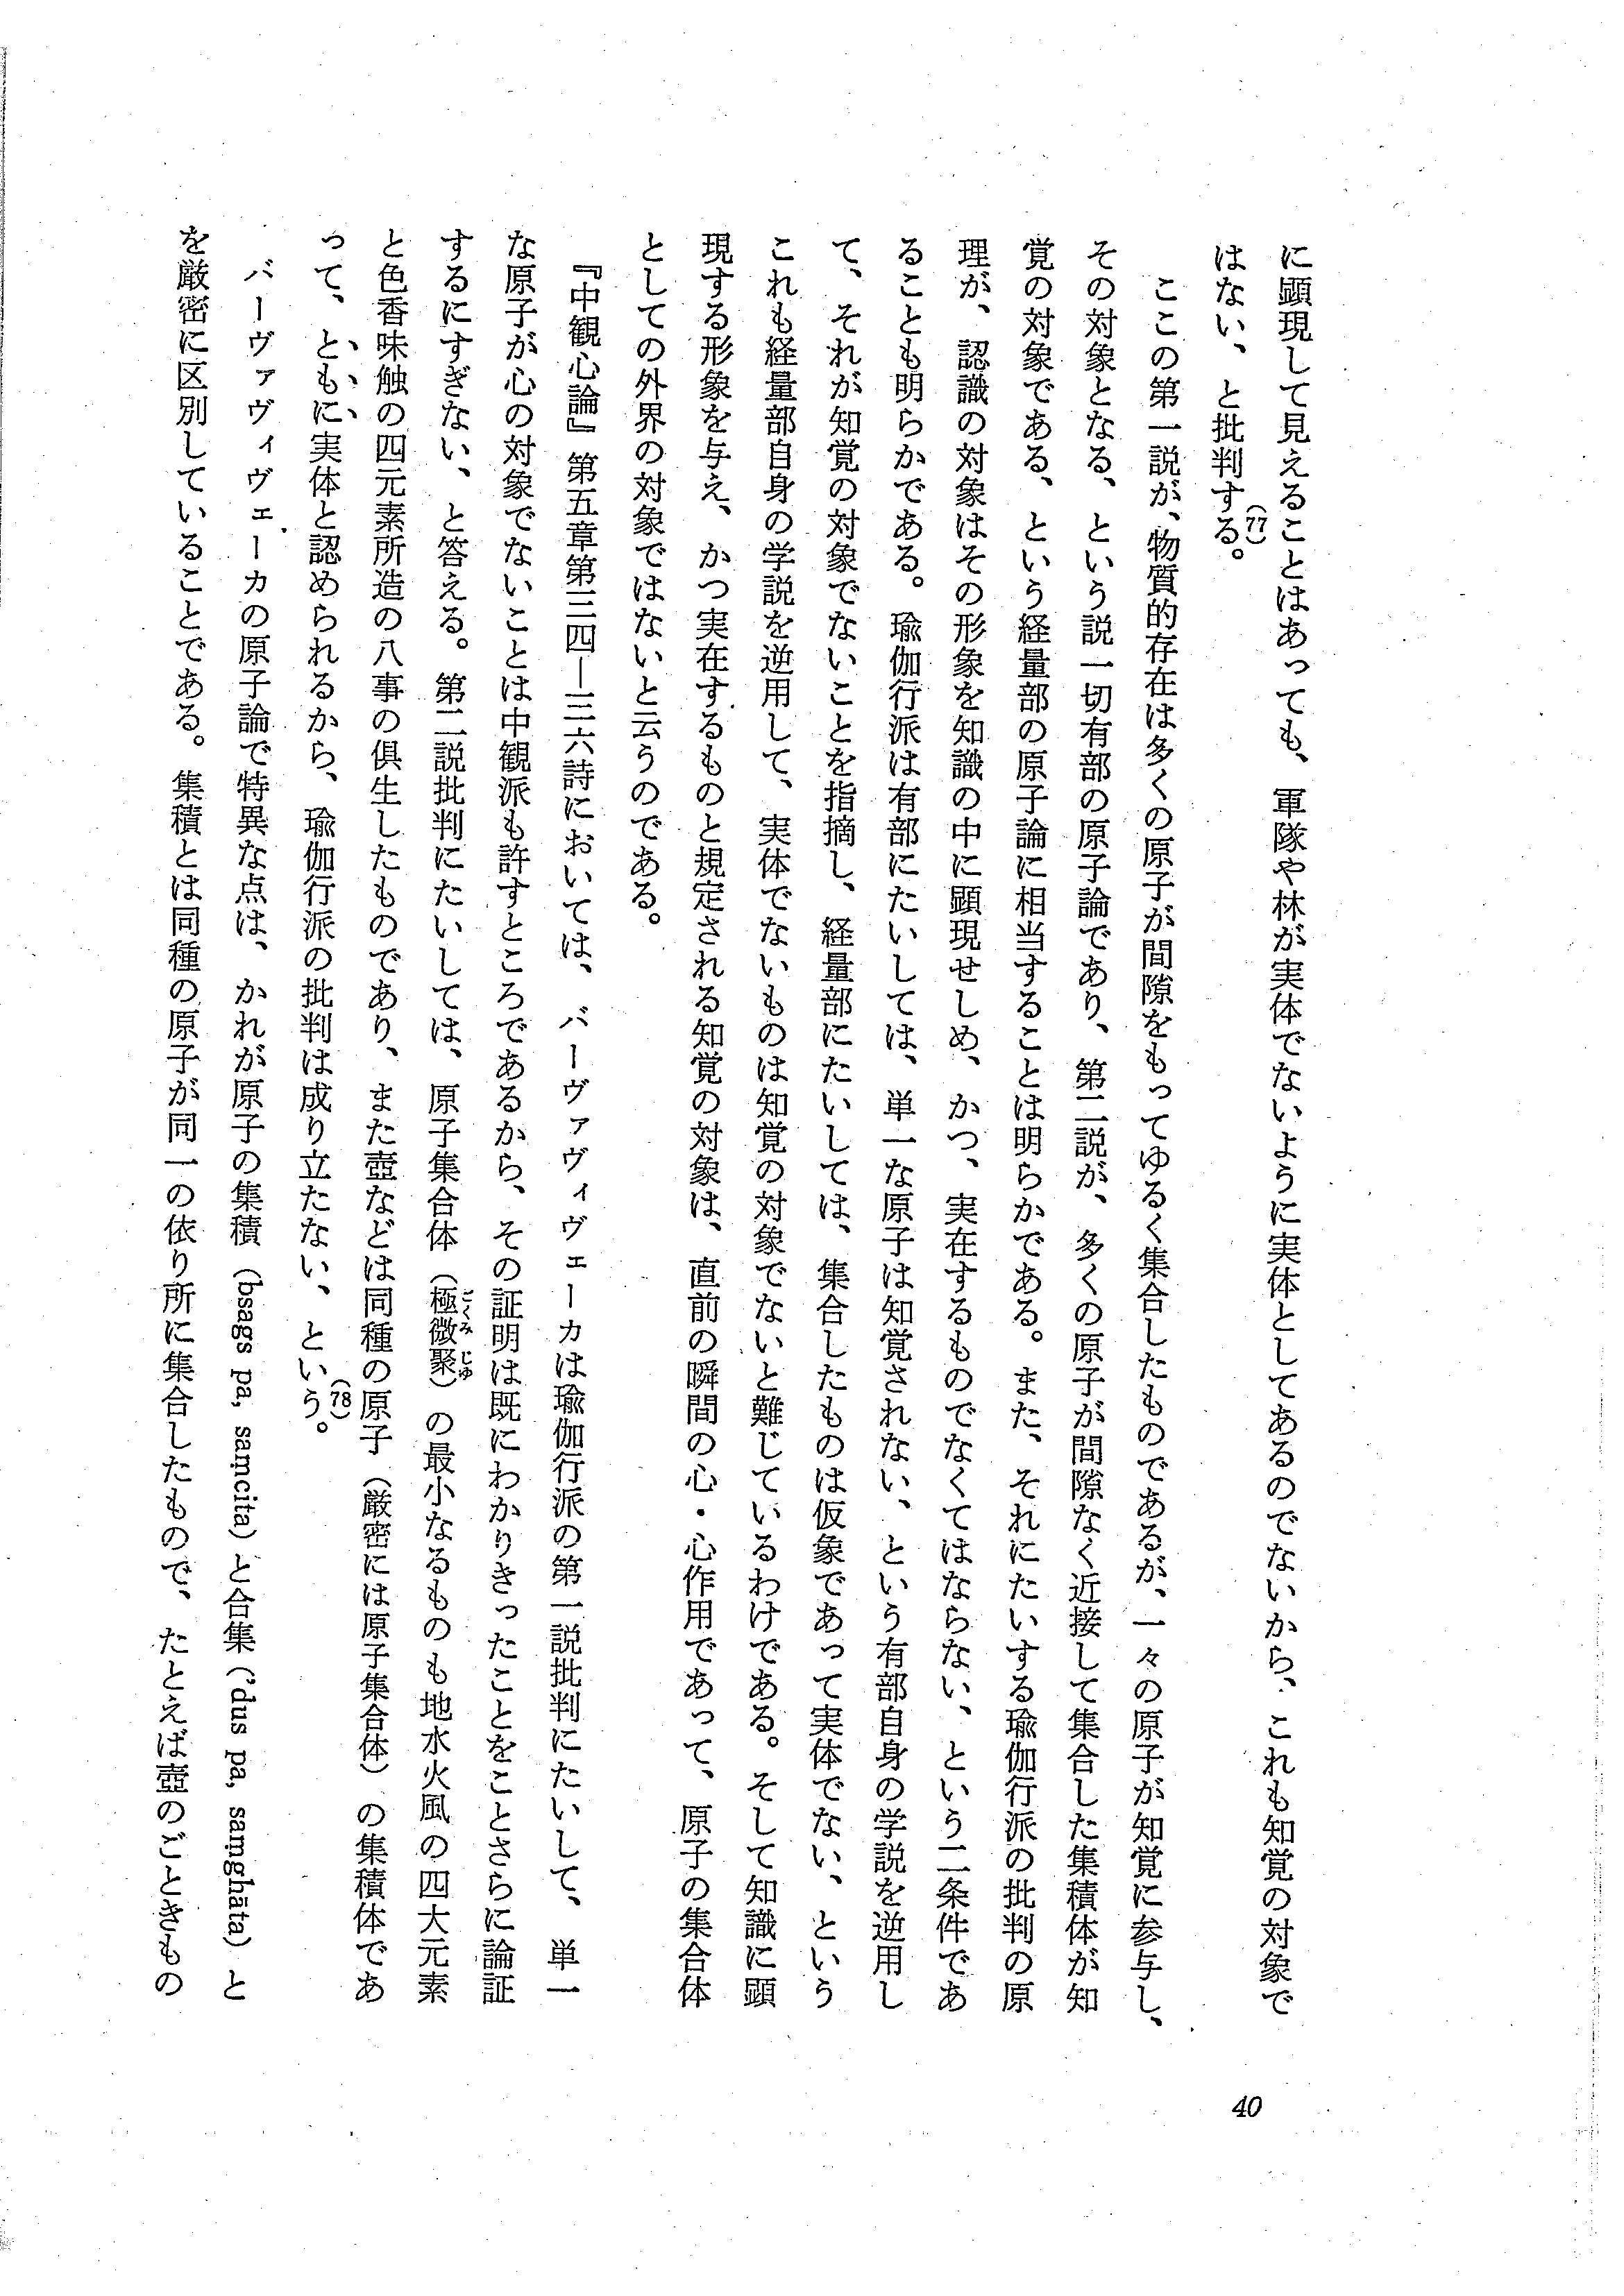 に顕現して見えることはあっても、軍隊や林が実体でないように実体としてあるのでないから、これも知覚の対象で
はない、と批判する。(77)
ここの第一説が、物質的存在は多くの原子が間隙をもってゆるく集合したものであるが、一々の原子が知覚に参与し、
その対象となる、という説一切有部の原子論であり、第二説が、多くの原子が間隙なく近接して集合した集積体が知
覚の対象である、という経量部の原子論に相当することは明らかである。また、それにたいする瑜伽行派の批判の原
理が、認識の対象はその形象を知識の中に顕現せしめ、かつ、実在するものでなくてはならない、という二条件であ
ることも明らかである。瑜伽行派は有部にたいしては、単一な原子は知覚されない、という有部自身の学説を逆用し
て、それが知覚の対象でないことを指摘し、経量部にたいしては、集合したものは仮象であって実体でない、という
これも経量部自身の学説を逆用して、実体でないものは知覚の対象でないと難じているわけである。そして知識に顕
現する形象を与え、かつ実在するものと規定される知覚の対象は、直前の瞬間の心・心作用であって、原子の集合体
としての外界の対象ではないと云うのである。
『中観心論』第五章第三四—三六詩においては、バーヴァヴィヴェーカは瑜伽行派の第一説批判にたいして、単一
な原子が心の対象でないことは中観派も許すところであるから、その証明は既にわかりきったことをことさらに論証
するにすぎない、と答える。第二説批判にたいしては、原子集合体（極微聚ごくみじゆ）の最小なるものも地水火風の四大元素
と色香味触の四元素所造の八事の倶生したものであり、また壺などは同種の原子（厳密には原子集合体）の集積体であ
って、ともに実体と認められるから、瑜伽行派の批判は成り立たない、という。(78)
バーヴァヴィヴェーカの原子論で特異な点は、かれが原子の集積（bsags pa, saṃcita）と合集（'dus pa, saṃghāta）と
を厳密に区別していることである。集積とは同種の原子が同一の依り所に集合したもので、たとえば壺のごときもの
40